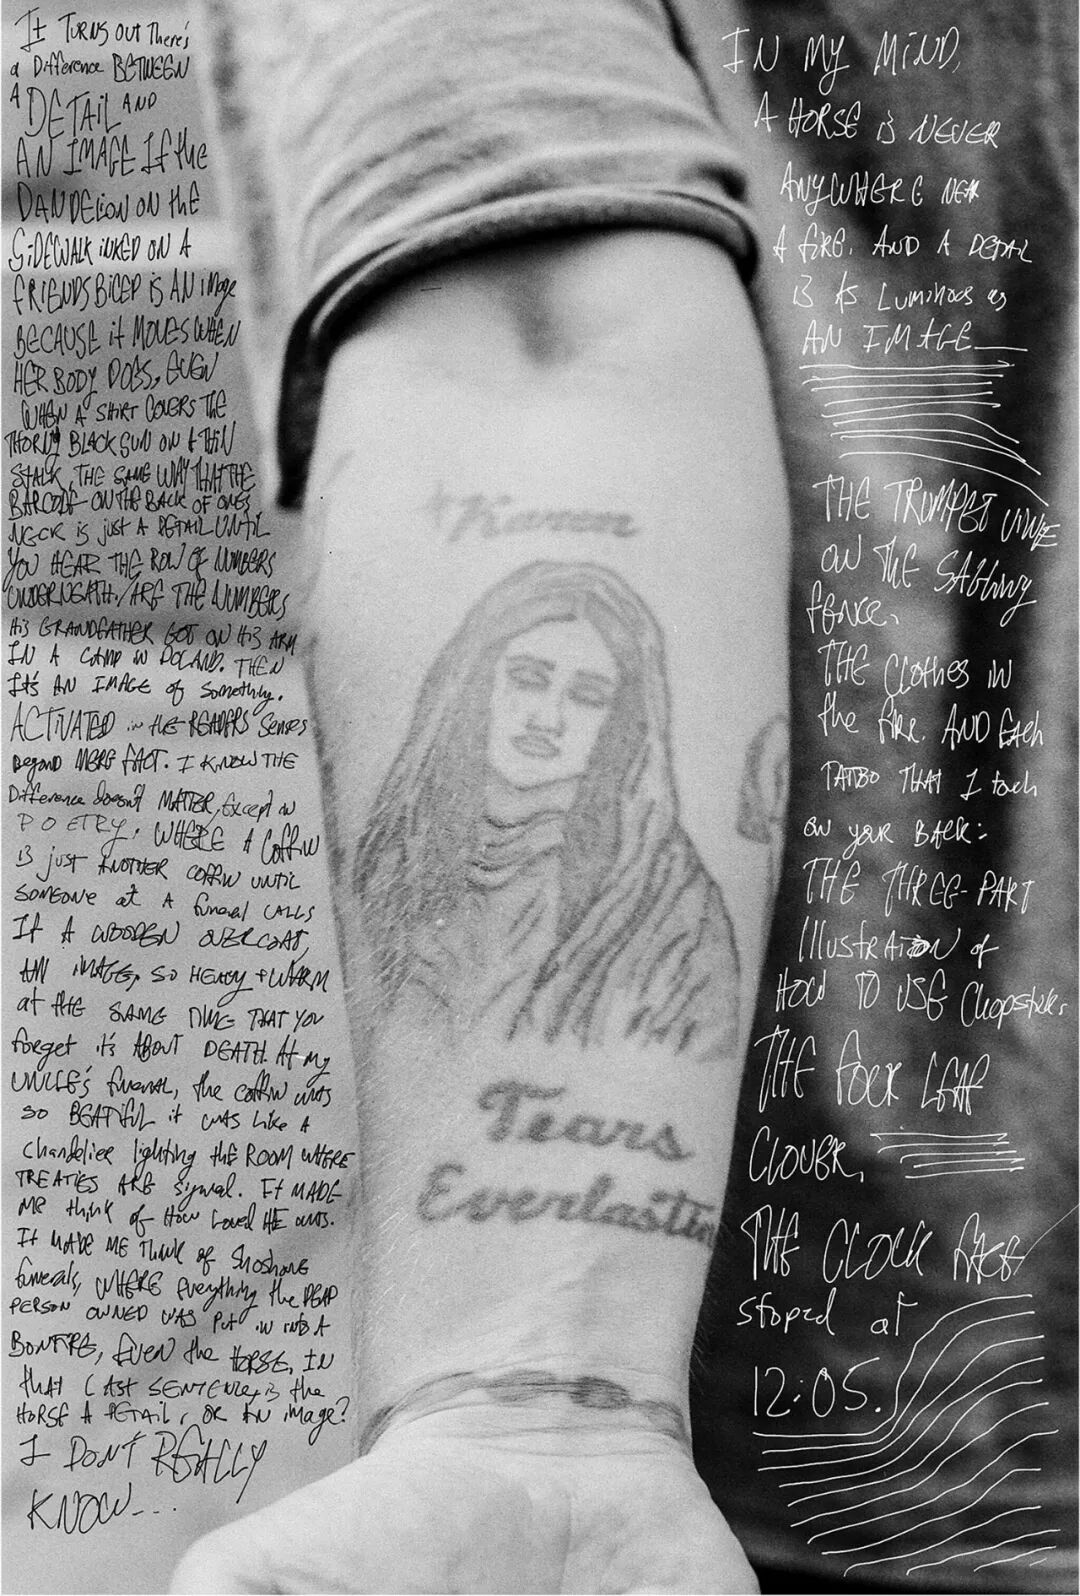 It TURNS OUT There's
a Difference BETWEEN
A DETAIL AND
AN IMAGE If the
DANDELION ON the
SIDEWALK INKED ON A
FRIENDS BICEP IS AN image
BECAUSE it MOVES WHEN
HER BODY DOES, EVEN
WHEN A SHIRT COVERS THE
THORNY BLACK SUN ON A THIN
STALK, THE SAME WAY THAT THE
BARCODE ON THE BACK OF ONES
NECK is just A DETAIL UNTIL
YOU HEAR THE ROW OF NUMBERS
UNDERNEATH ARE THE NUMBERS
HIS GRANDFATHER GOT ON HIS ARM
IN A CAMP IN POLAND. THEN
It's AN IMAGE of Something.
ACTIVATED in the READERS Senses
beyond MERE FACT. I KNOW THE
Difference doesn't MATTER, Except in
POETRY. WHERE A Coffin
is just ANOTHER coffin UNTIL
SOMEONE at A funeral CALLS
It A WOODEN OVERCOAT,
AN IMAGE, SO HEAVY + WARM
at the SAME TIME THAT YOU
forget it's ABOUT DEATH. At my
UNCLE'S funeral, the coffin was
so BEATIFUL it WAS LIKE A
chandelier lighting the ROOM WHERE
TREATIES ARE Signed. It MADE
ME think of How Loved HE was.
It MADE ME THINK of Shoshone
funerals, WHERE Everything the DEAD
PERSON OWNED WAS Put in into A
BONFIRE, Even the HORSE, IN
that LAST SENTENCE, is the
HORSE A DETAIL, OR AN image?
I DON'T REALLY
KNOW...
+Karen
Tears
Everlastin
IN MY MIND,
A HORSE is NEVER
ANYWHERE NEAR
A FIRE. AND A DETAIL
IS AS Luminous as
AN IMAGE
THE TRUMPET VINE
ON THE SAGGING
FENCE.
THE Clothes in
the fire. AND EACH
TATTOO THAT I touch
on your BACK:
THE THREE-PART
Illustration of
HOW TO USE Chopsticks.
THE FOUR LEAF
CLOVER.
THE CLOCK FACE
stoped at
12:05.